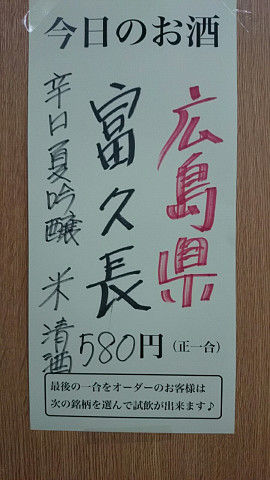 今日のお酒
広島県
富久長
辛口夏吟醸 米清酒
580円(正一合)
最後の一合をオーダーのお客様は
次の銘柄を選んで試飲が出来ます♪